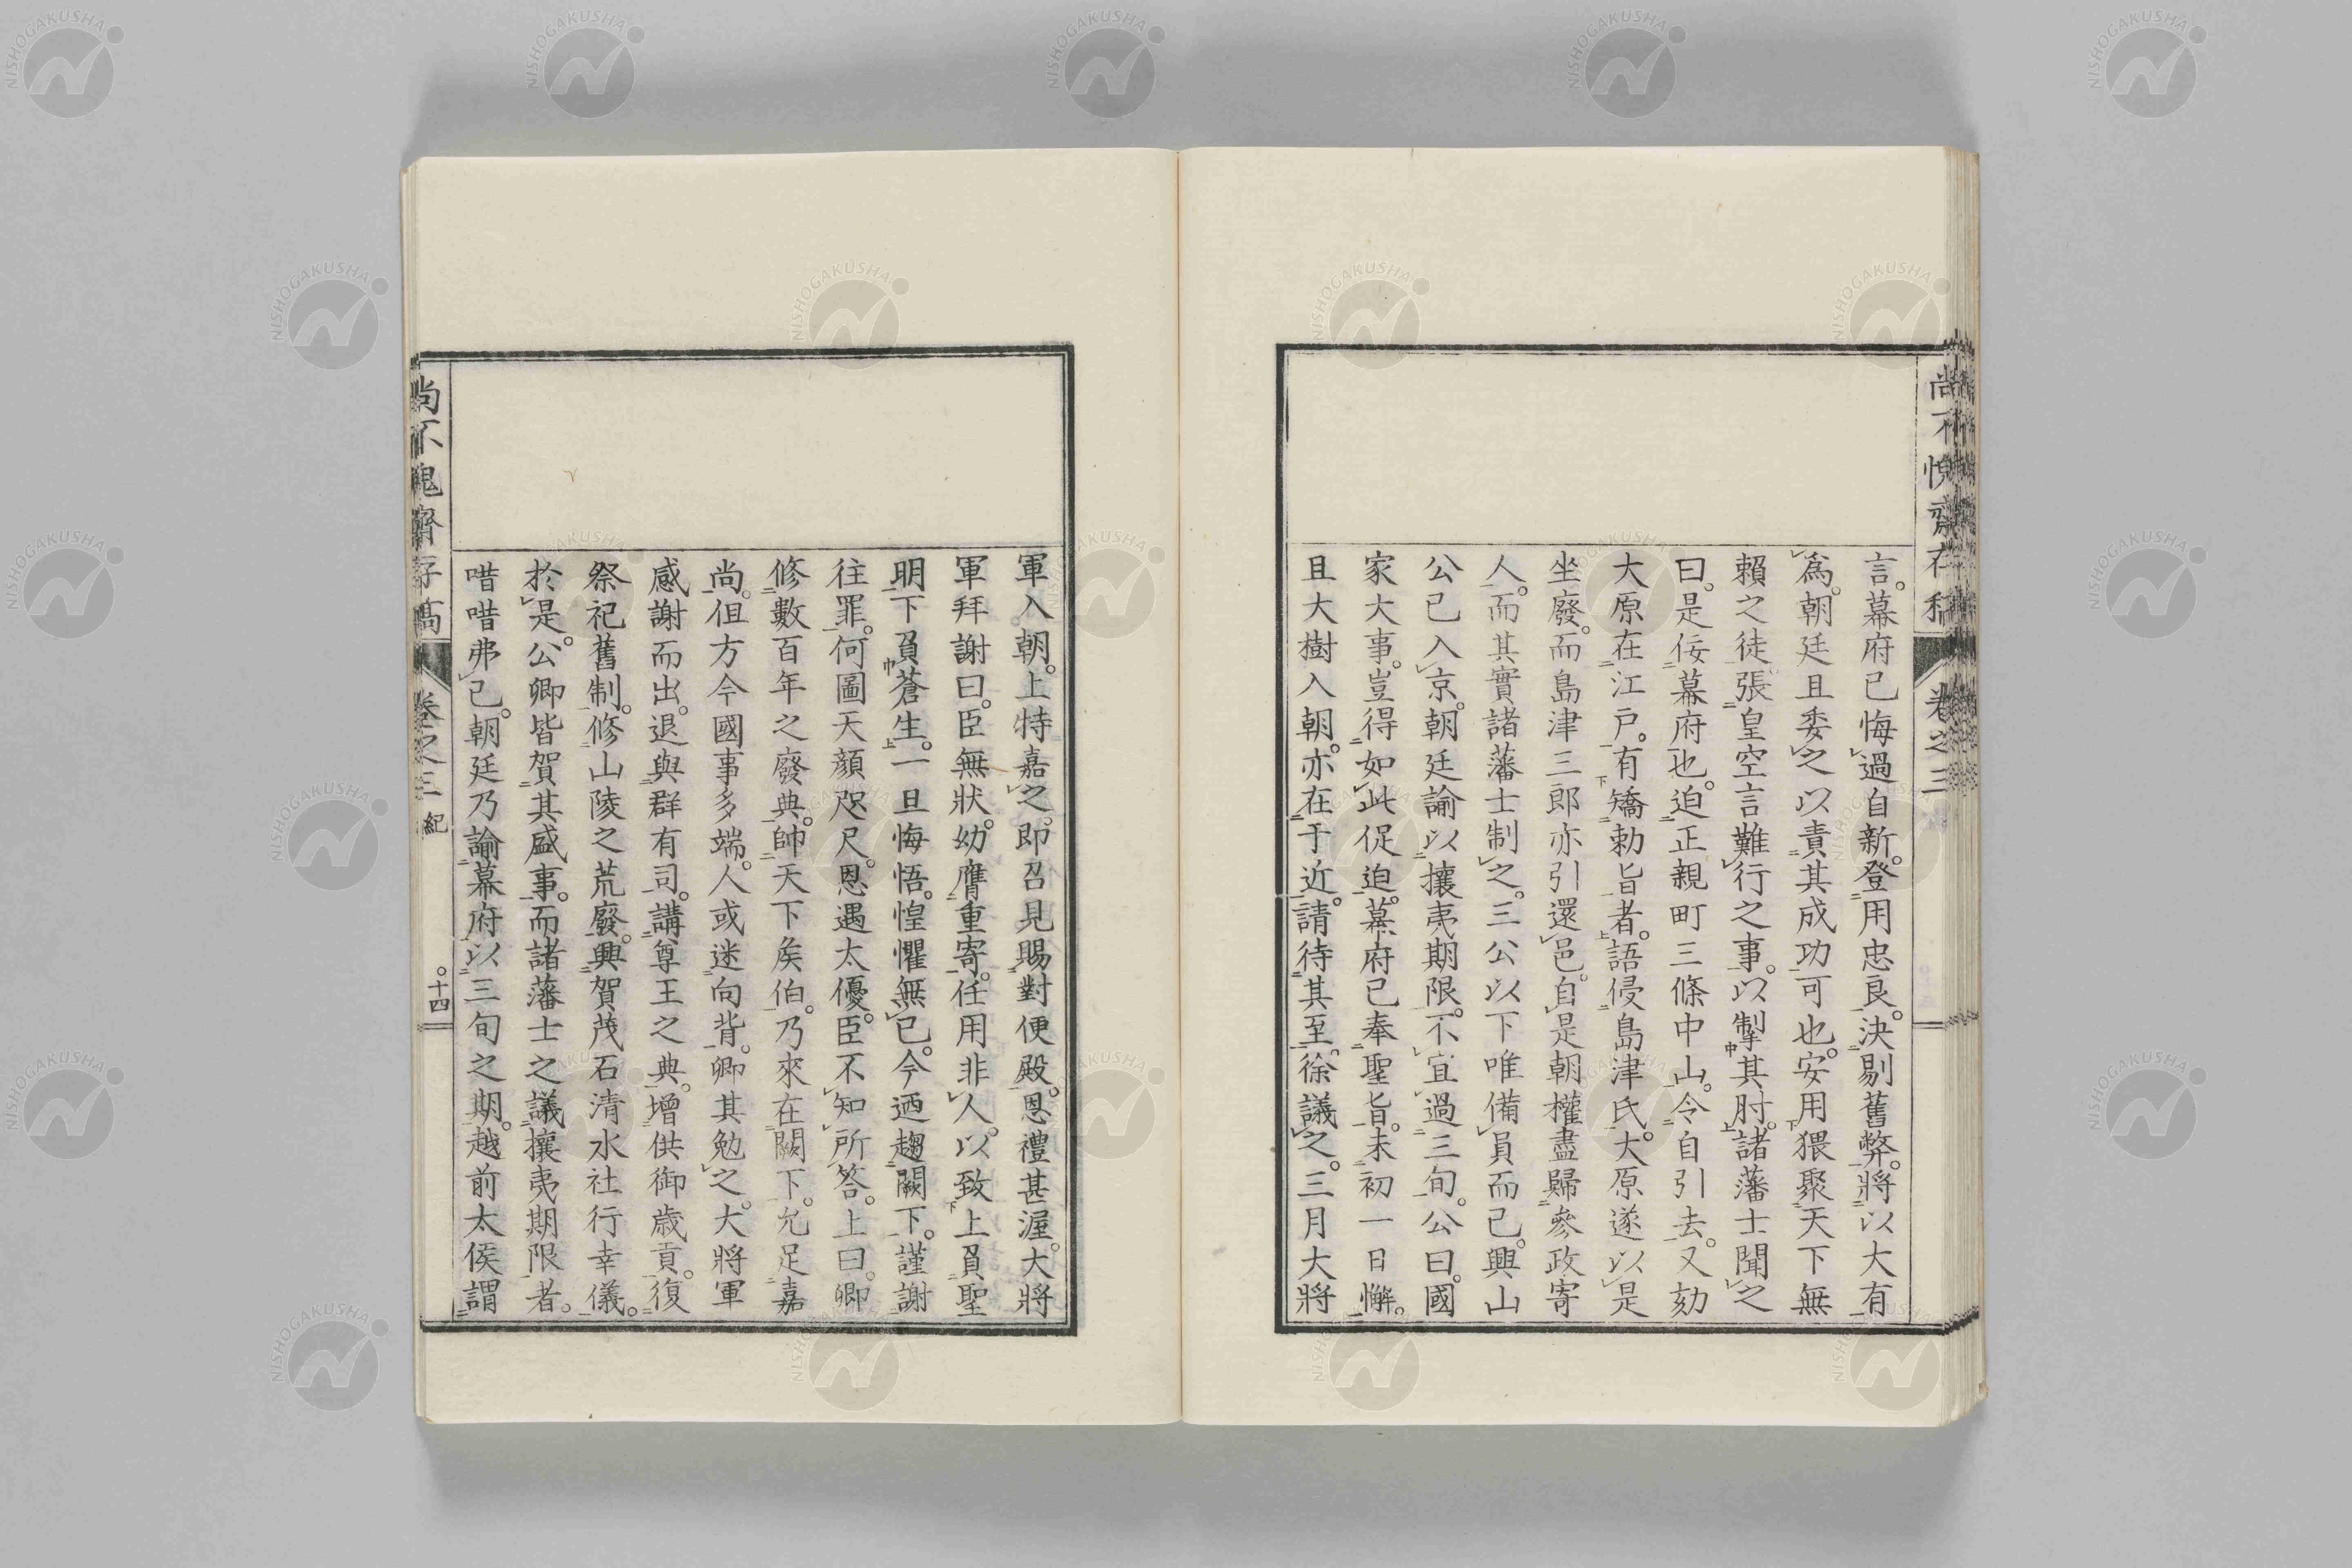 言。幕府已悔過自新。登用忠良。決剔舊弊。將以大有
爲。朝廷且委之以責其成功可也。安用猥聚天下無
賴之徒。張皇空言難行之事。以掣其肘。諸藩士聞之
曰。是佞幕府也。迫正親町三條中山。令自引去。又劾
大原在江戸。有矯勅旨者。語侵島津氏。大原遂以是
坐廢。而島津三郎亦引還邑。自是朝權盡歸參政寄
人。而其實諸藩士制之。三公以下唯備員而已。興山
公已入京。朝廷諭以攘夷期限。不宜過三旬。公曰。國
家大事。豈得如此促迫。幕府已奉聖旨。未初一日懈。
且大樹入朝。亦在于近。請待其至。徐議之。三月大將
軍入朝。上特嘉之。即召見賜對便殿。恩禮甚渥。大將
軍拜謝曰。臣無狀。幼膺重寄。任用非人。以致上負聖
明。下負蒼生。一旦悔悟。惶懼無已。今迺趨闕下。謹謝
往罪。何圖天顏咫尺。恩遇太優。臣不知所答。上曰。卿
修數百年之廢典。帥天下矦伯。乃來在闕下。允足嘉
尚。但方今國事多端。人或迷向背。卿其勉之。大將軍
感謝而出。退與群有司。講尊王之典。增供御歲貢。復
祭祀舊制。修山陵之荒廢。興賀茂石清水社行幸儀。
於是。公卿皆賀其盛事。而諸藩士之議攘夷期限者。
唶唶弗已。朝廷乃諭幕府以三旬之期。越前太侯謂
尚不愧齋存稿
卷之三
紀
十四
尚不愧齋存稿
卷之三
NISHOGAKUSHA